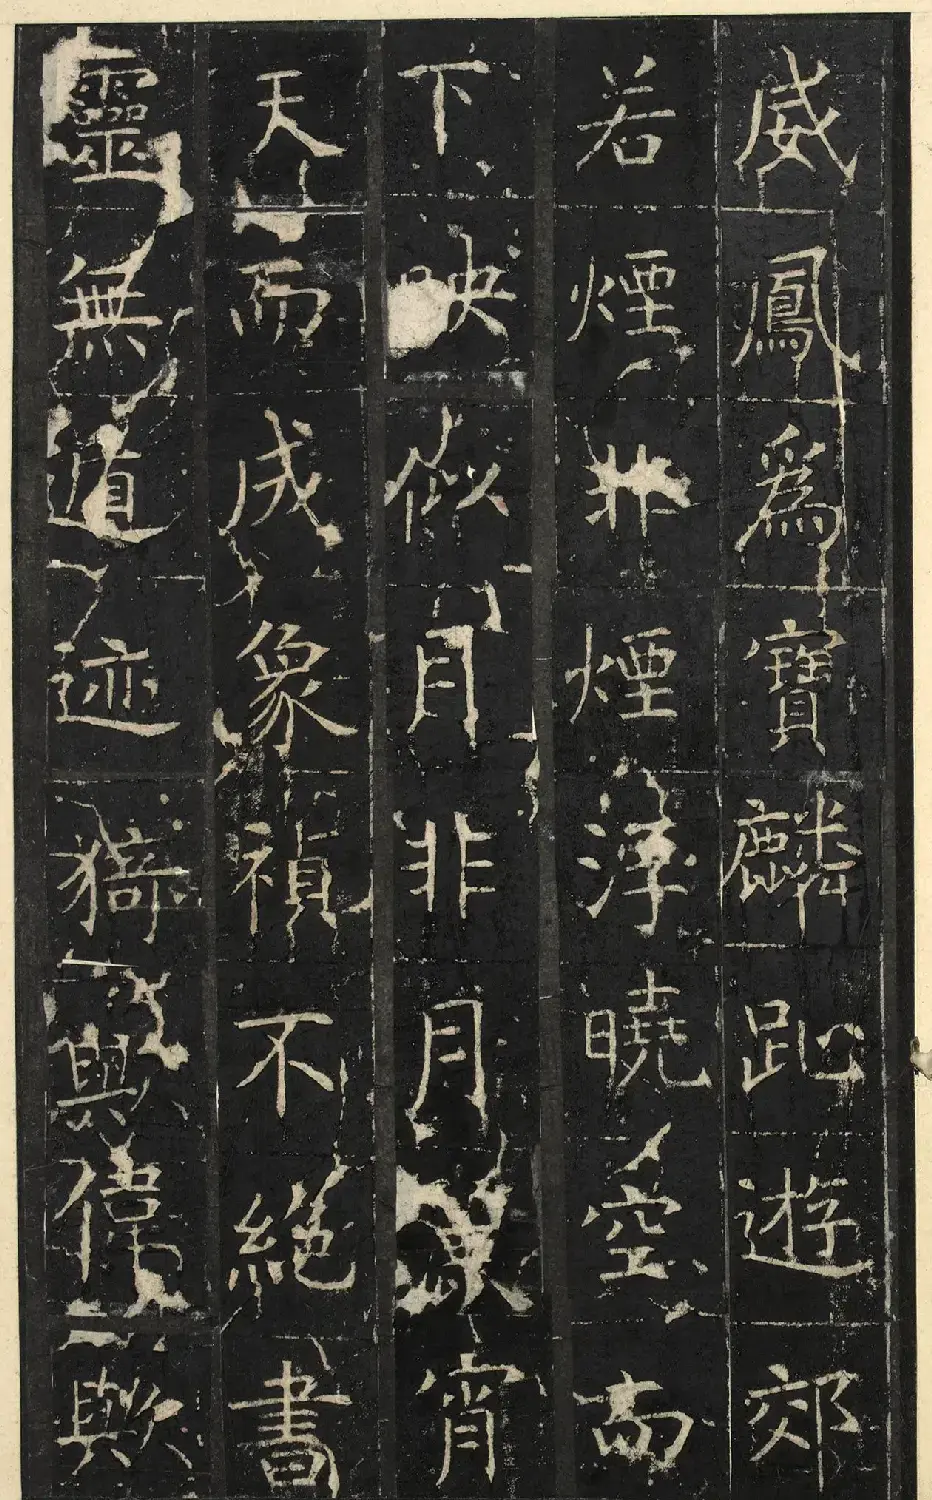 威鳳爲寶麟趾遊郊
若煙非煙浮曉空而
下映似月非月宵
天而成象禎不絕書
靈無遁迹猗與偉歟